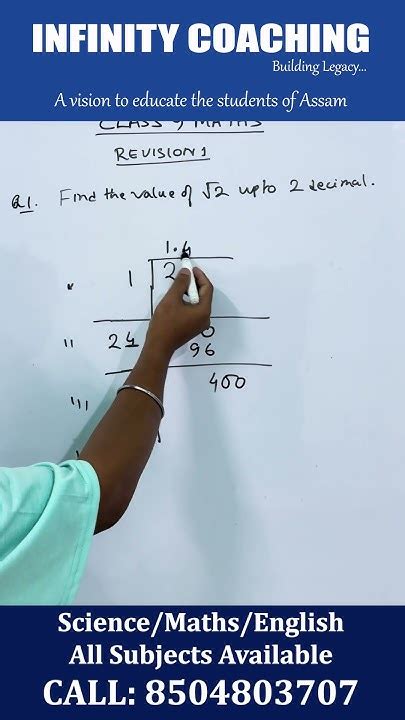 INFINITY COACHING
Building Legacy...
A vision to educate the students of Assam
CLASS 9 MATHS
REVISION 1
Q1. Find the value of √2 upto 2 decimal.
1.4
ı 1 2
ıı 24 0
96
400
ııı
Science/Maths/English
All Subjects Available
CALL: 8504803707